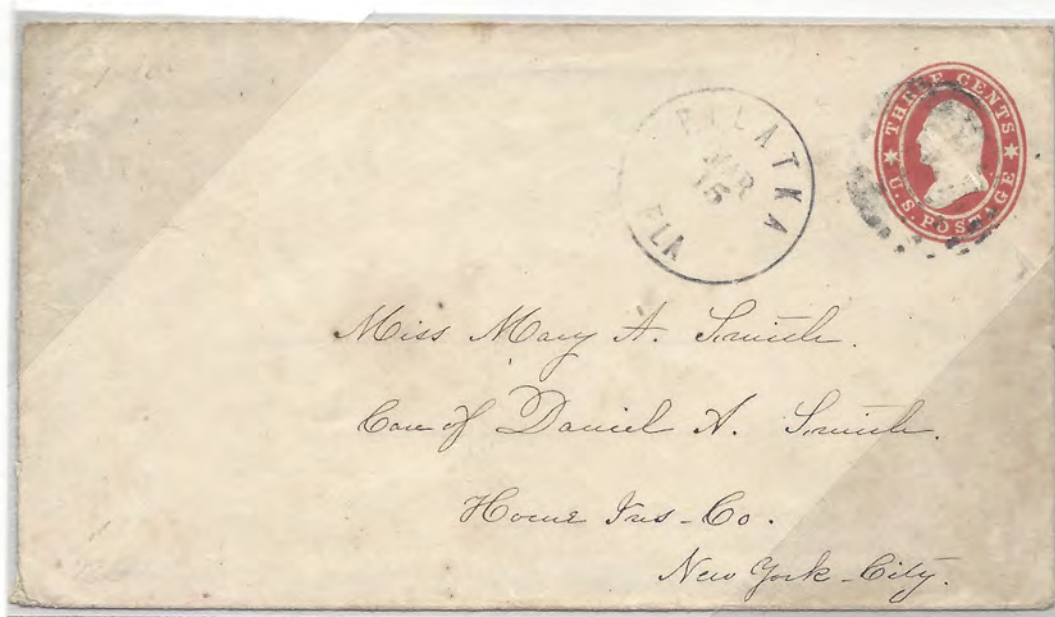 PILATKA
MAR
15
FLA
★ THREE CENTS ★
U.S. POSTAGE
Miss Mary A. Smith.
Care of Daniel A. Smith.
Home Ins - Co.
New York - City.